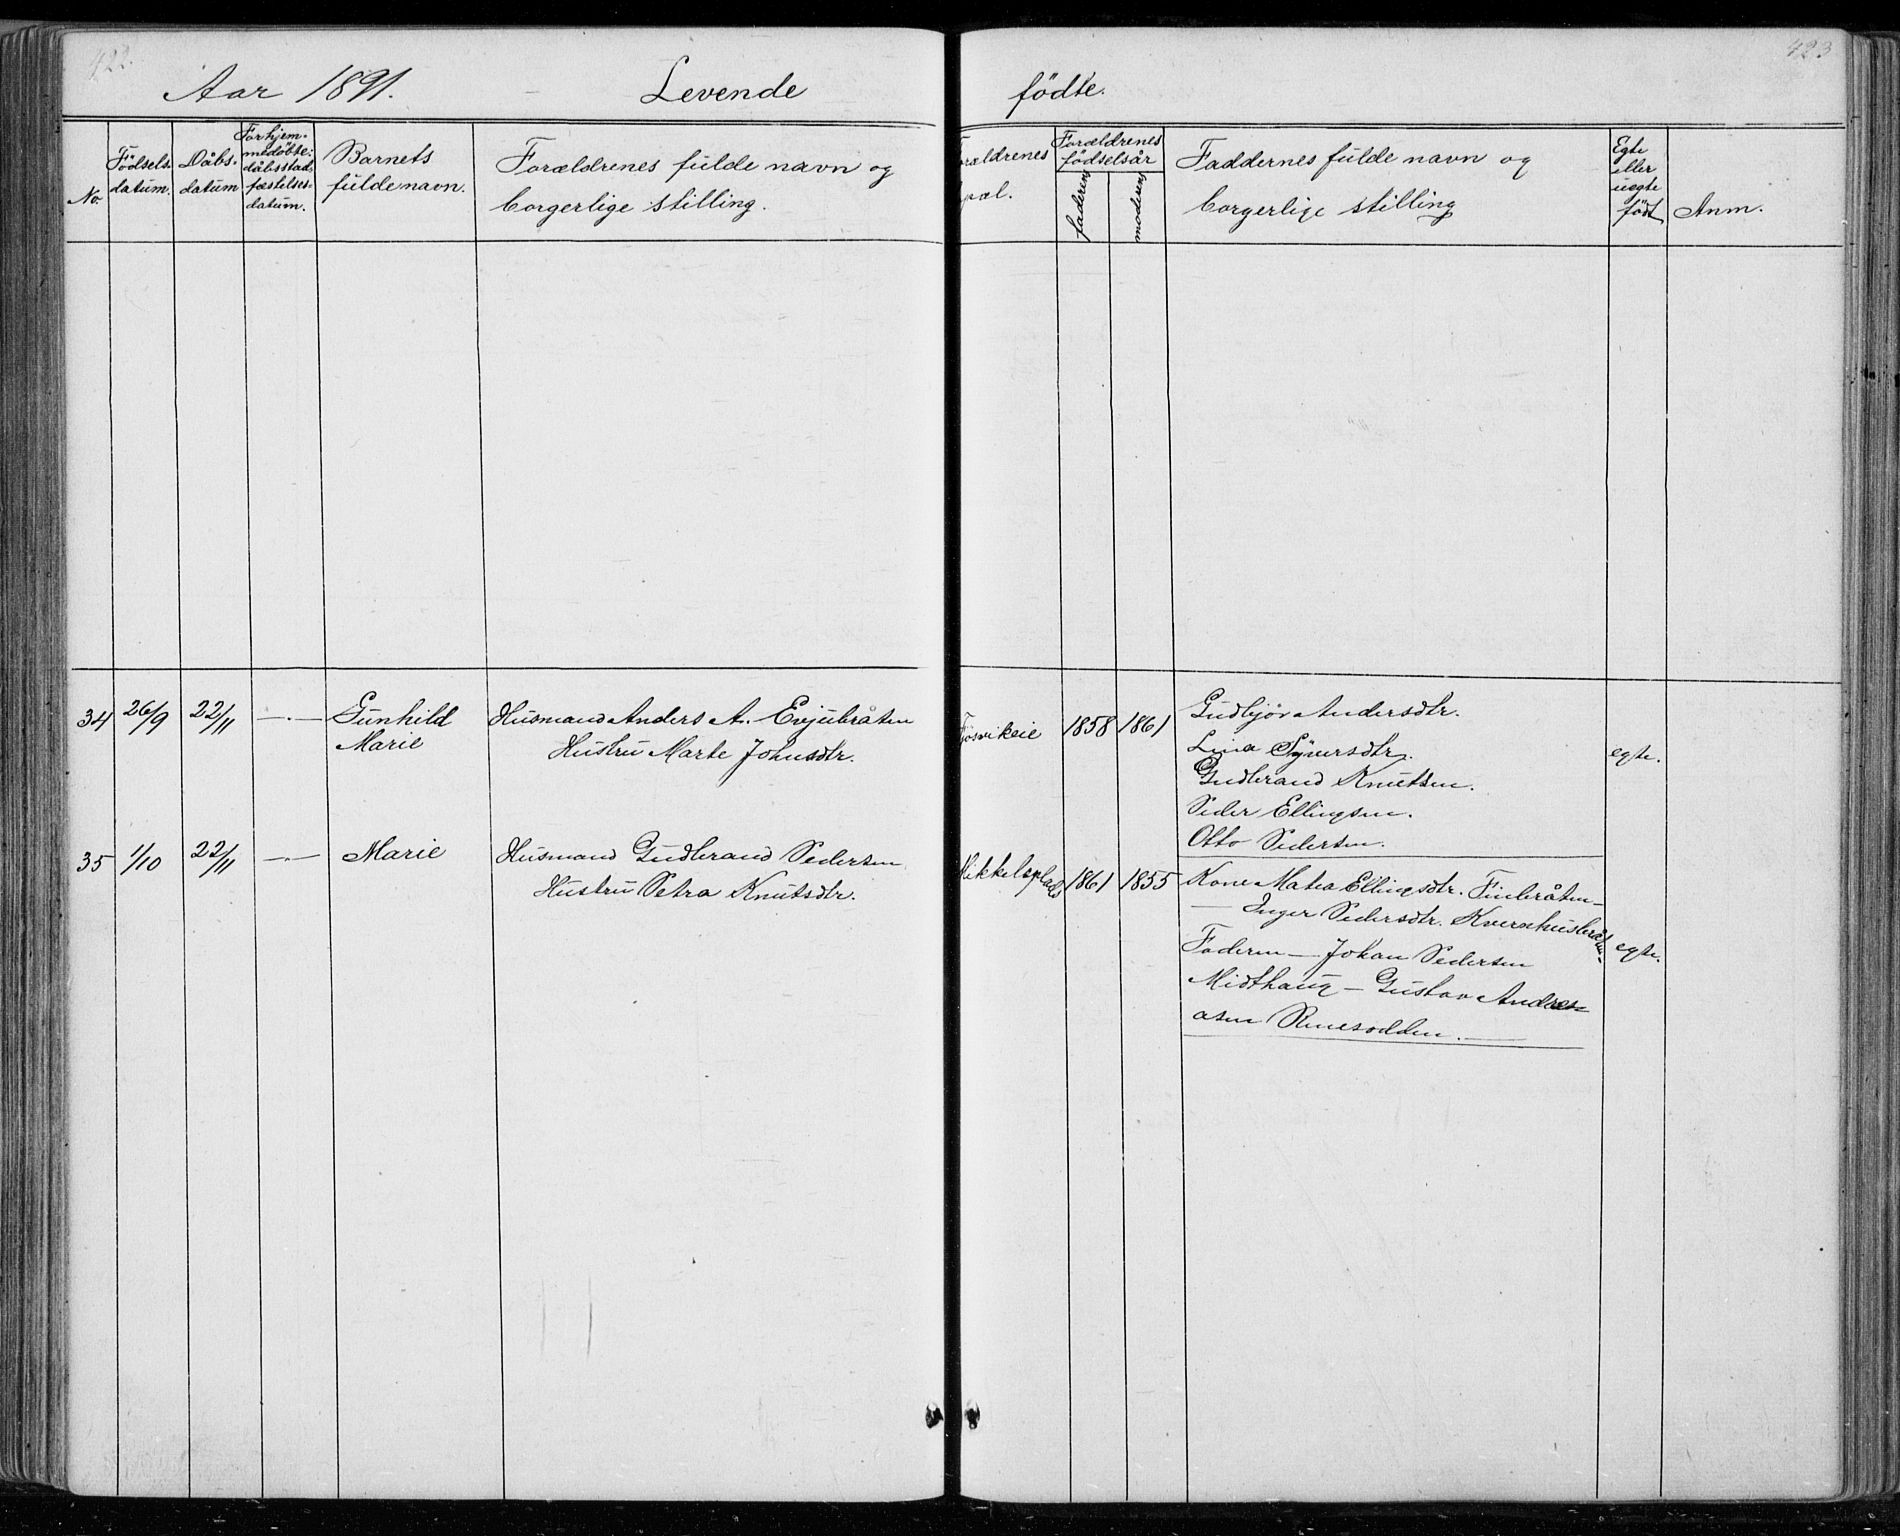 422.
423
Aar 1891. Levende fødte.
No.
Födsels.
datum.
Dåbs.
datum
For hjem-
medöbte:
dåbsstad-
fæstelses-
datum.
Barnets
fulde navn.
Forældrenes fulde navn og
borgerlige stilling.
orældrenes
pæl.
Forældrenes
fødselsår
faderens
moderens
Faddernes fulde navn og
borgerlige stilling
Egte
eller
uegte
födt
Anm.
34 26/9 22/11 — . — Gunhild
Marie
Husmand Anders A. Evjubråten
Hustru Marte Johnsdtr.
1858 1861
Gudbjör Andersdtr.
Lina Syversdtr.
Gudbrand Knutsen.
Peder Ellingsen.
Otto Pedersen.
egte.
35 1/10 22/11 — . — Marie
Husmand Gudbrand Pedersen
Hustru Petra Knutsdtr.
Mikkelsplads 1861 1855
Kone Matea Ellingsdtr. Finbråten
— Inger Pedersdtr. Kvernhusbråten.
Faderen — Johan Pedersen
Midthaug — Gustav Andre
asen
egte.